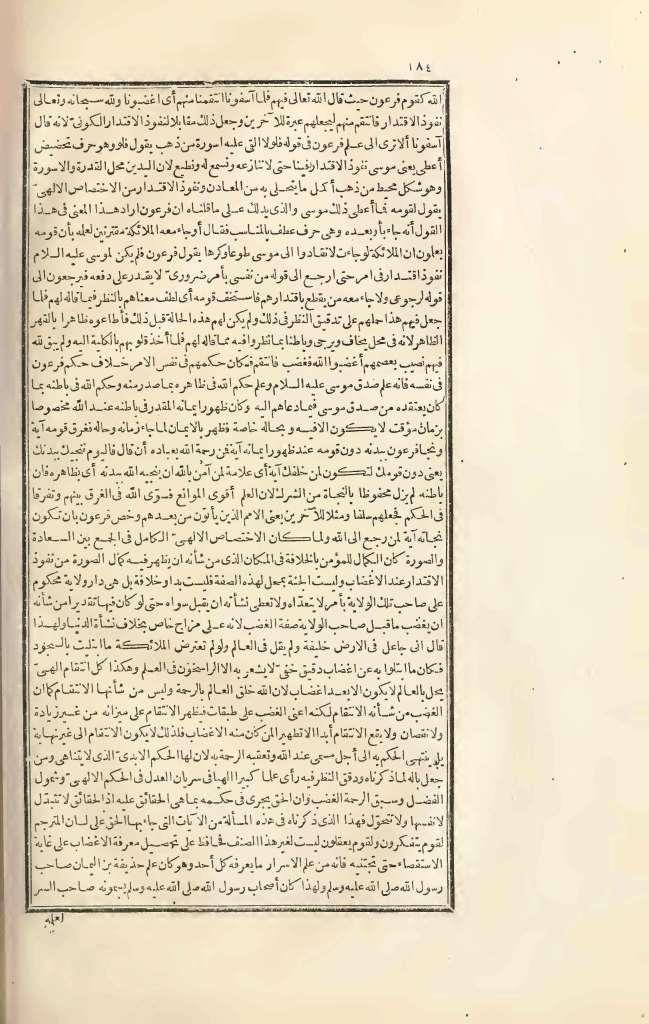 ١٨٤
الله كقوم فرعون حيث قال الله تعالى فيهم فلما آسفونا انتقمنا منهم أى اغضبونا ولله سبحانه وتعالى
نفوذ الاقتدار فانتقم منهم ليجعلهم عبرة للآخرين وجعل ذلك مقابلا لنفوذ الاقتدار الكونى لانه قال
آسفونا ألا ترى الى علم فرعون فى قوله فلولا القى عليه اسورة من ذهب يقول فلو وهو حرف تحضيض
أعطى يعنى موسى نفوذ الاقتدار فينا حتى لا تنازعه ونسمع له ونطيع لان اليدين محل القدرة والاسورة
وهو شكل محيط من ذهب أكمل ما يتحلى به من المعادن ونفوذ الاقتدار من الاختصاص الالهى
يقول لقومه فما أعطى ذلك موسى والذى يدلك على ما قلناه ان فرعون اراد هذا المعنى فى هذا
القول أنه جاء بأو بعده وهى حرف عطف بالمناسب فقال أو جاء معه الملائكة مقترنين لعلمه بأن قومه
يعلمون ان الملائكة لو جاءت لانقادوا الى موسى طوعا وكرها يقول فرعون فلم يكن لموسى عليه السلام
نفوذ اقتدار فى امر حتى ارجع الى قوله من نفسى بأمر ضرورى لا يقدر على دفعه فيرجعون الى
قوله لرجوعى ولا جاء معه من يقطع باقتدارهم فاستخف قومه أى لطف معناهم بالنظر فيما قاله لهم فلما
جعل فيهم هذا حملهم على تدقيق النظر فى ذلك ولم يكن لهم هذه الحالة قبل ذلك فأطاعوه ظاهرا بالقهر
الظاهر لانه فى محل يخاف ويرجى وباطنا بما نظروا فيه مما قاله لهم فلما أخذ قلوبهم بالكلية اليه ولم يبق لله
فيهم نصيب يعصمهم أغضبوا الله فغضب فانتقم فكان حكمهم فى نفس الامر خلاف حكم فرعون
فى نفسه فانه علم صدق موسى عليه السلام وعلم حكم الله فى ظاهره بما صدر منه وحكم الله فى باطنه بما
كان يعتقده من صدق موسى فيما دعاهم اليه وكان ظهور ايمانه المقدر فى باطنه عند الله مخصوصا
بزمان مؤقت لا يكون الا فيه وبحالة خاصة فظهر بالايمان لما جاء زمانه وحاله نغرق قومه آية
ونجا فرعون ببدنه دون قومه عند ظهور ايمانه آية فمن رحمة الله بعباده أن قال فاليوم ننجيك ببدنك
يعنى دون قومك لتكون لمن خلفك آية أى علامة لمن آمن بالله ان ينجيه الله ببدنه أى بظاهره فان
باطنه لم يزل محفوظا بالنجاة من الشرك لان العلم أقوى الموانع فسوّى الله فى الغرق بينهم وتفرقا
فى الحكم فجعلهم سلفا ومثلا للآخرين يعنى الامم الذين يأتون من بعدهم وخص فرعون بان تكون
نجاته آية لمن رجع الى الله ولما كان الاختصاص الالهى الكامل فى الجمع بين السعادة
والصورة كان الكمال للمؤمن بالخلافة فى المكان الذى من شأنه ان يظهر فيه كمال الصورة من نفوذ
الاقتدار عند الاغضاب وليست الجنة بمحل لهذه الصفة فليست بدار خلافة بل هى دار ولاية محكوم
على صاحب تلك الولاية بأمر لا يتعداه ولا تعطى نشأته ان يقبل سواه حتى لو كان فيها تقديرا من شأنه
ان يغضب ما قبل صاحب الولاية صفة الغضب لانه على مزاج خاص بخلاف نشأة الدنيا ولهذا
قال انى جاعل فى الارض خليفة ولم يقل فى العالم ولو لم تعترض الملائكة ما ابتليت بالسجود
فكان ما ابتلوا به عن اغضاب دقيق خفى لا يشعر به الا الراسخون فى العلم وهكذا كل انتقام الهى
يحل بالعالم لا يكون الا بعد اغضاب لان الله خلق العالم بالرحمة وليس من شأنها الانتقام كما ان
الغضب من شأنه الانتقام لكنه اعنى الغضب على طبقات فيظهر الانتقام على ميزانه من غير زيادة
ولا نقصان ولا يقع الانتقام أبدا الا تطهيرا لمن كان منه الاغضاب فلذلك لا يكون الانتقام الى غير نهاية
بل ينتهى الحكم به الى أجل مسمى عند الله وتعقبه الرحمة به لان لها الحكم الابدى الذى لا يتناهى ومن
جعل باله لما ذكرناه ودقق النظر فيه رأى علما كبيرا الهيا فى سريان العدل فى الحكم الالهى وشمول
الفضل وسبق الرحمة الغضب وان الحق يجرى فى حكمه بما هى الحقائق عليه اذ الحقائق لا تتبدل
لانفسها ولا تتحول فهذا الذى ذكرناه فى هذه المسألة من الآيات التى جاء بها الحق على لسان المترجم
لقوم يتفكرون ولقوم يعقلون ليست لغير هذا الصنف فحافظ على تحصيل معرفة الاغضاب على غاية
الاستقصاء حتى تجتنبه فانه من علم الاسرار ما يعرفه كل أحد وهو كان علم حذيفة بن اليمان صاحب
رسول الله صلى الله عليه وسلم ولهذا كان أصحاب رسول الله صلى الله عليه وسلم يسمونه صاحب السر
لعلمه